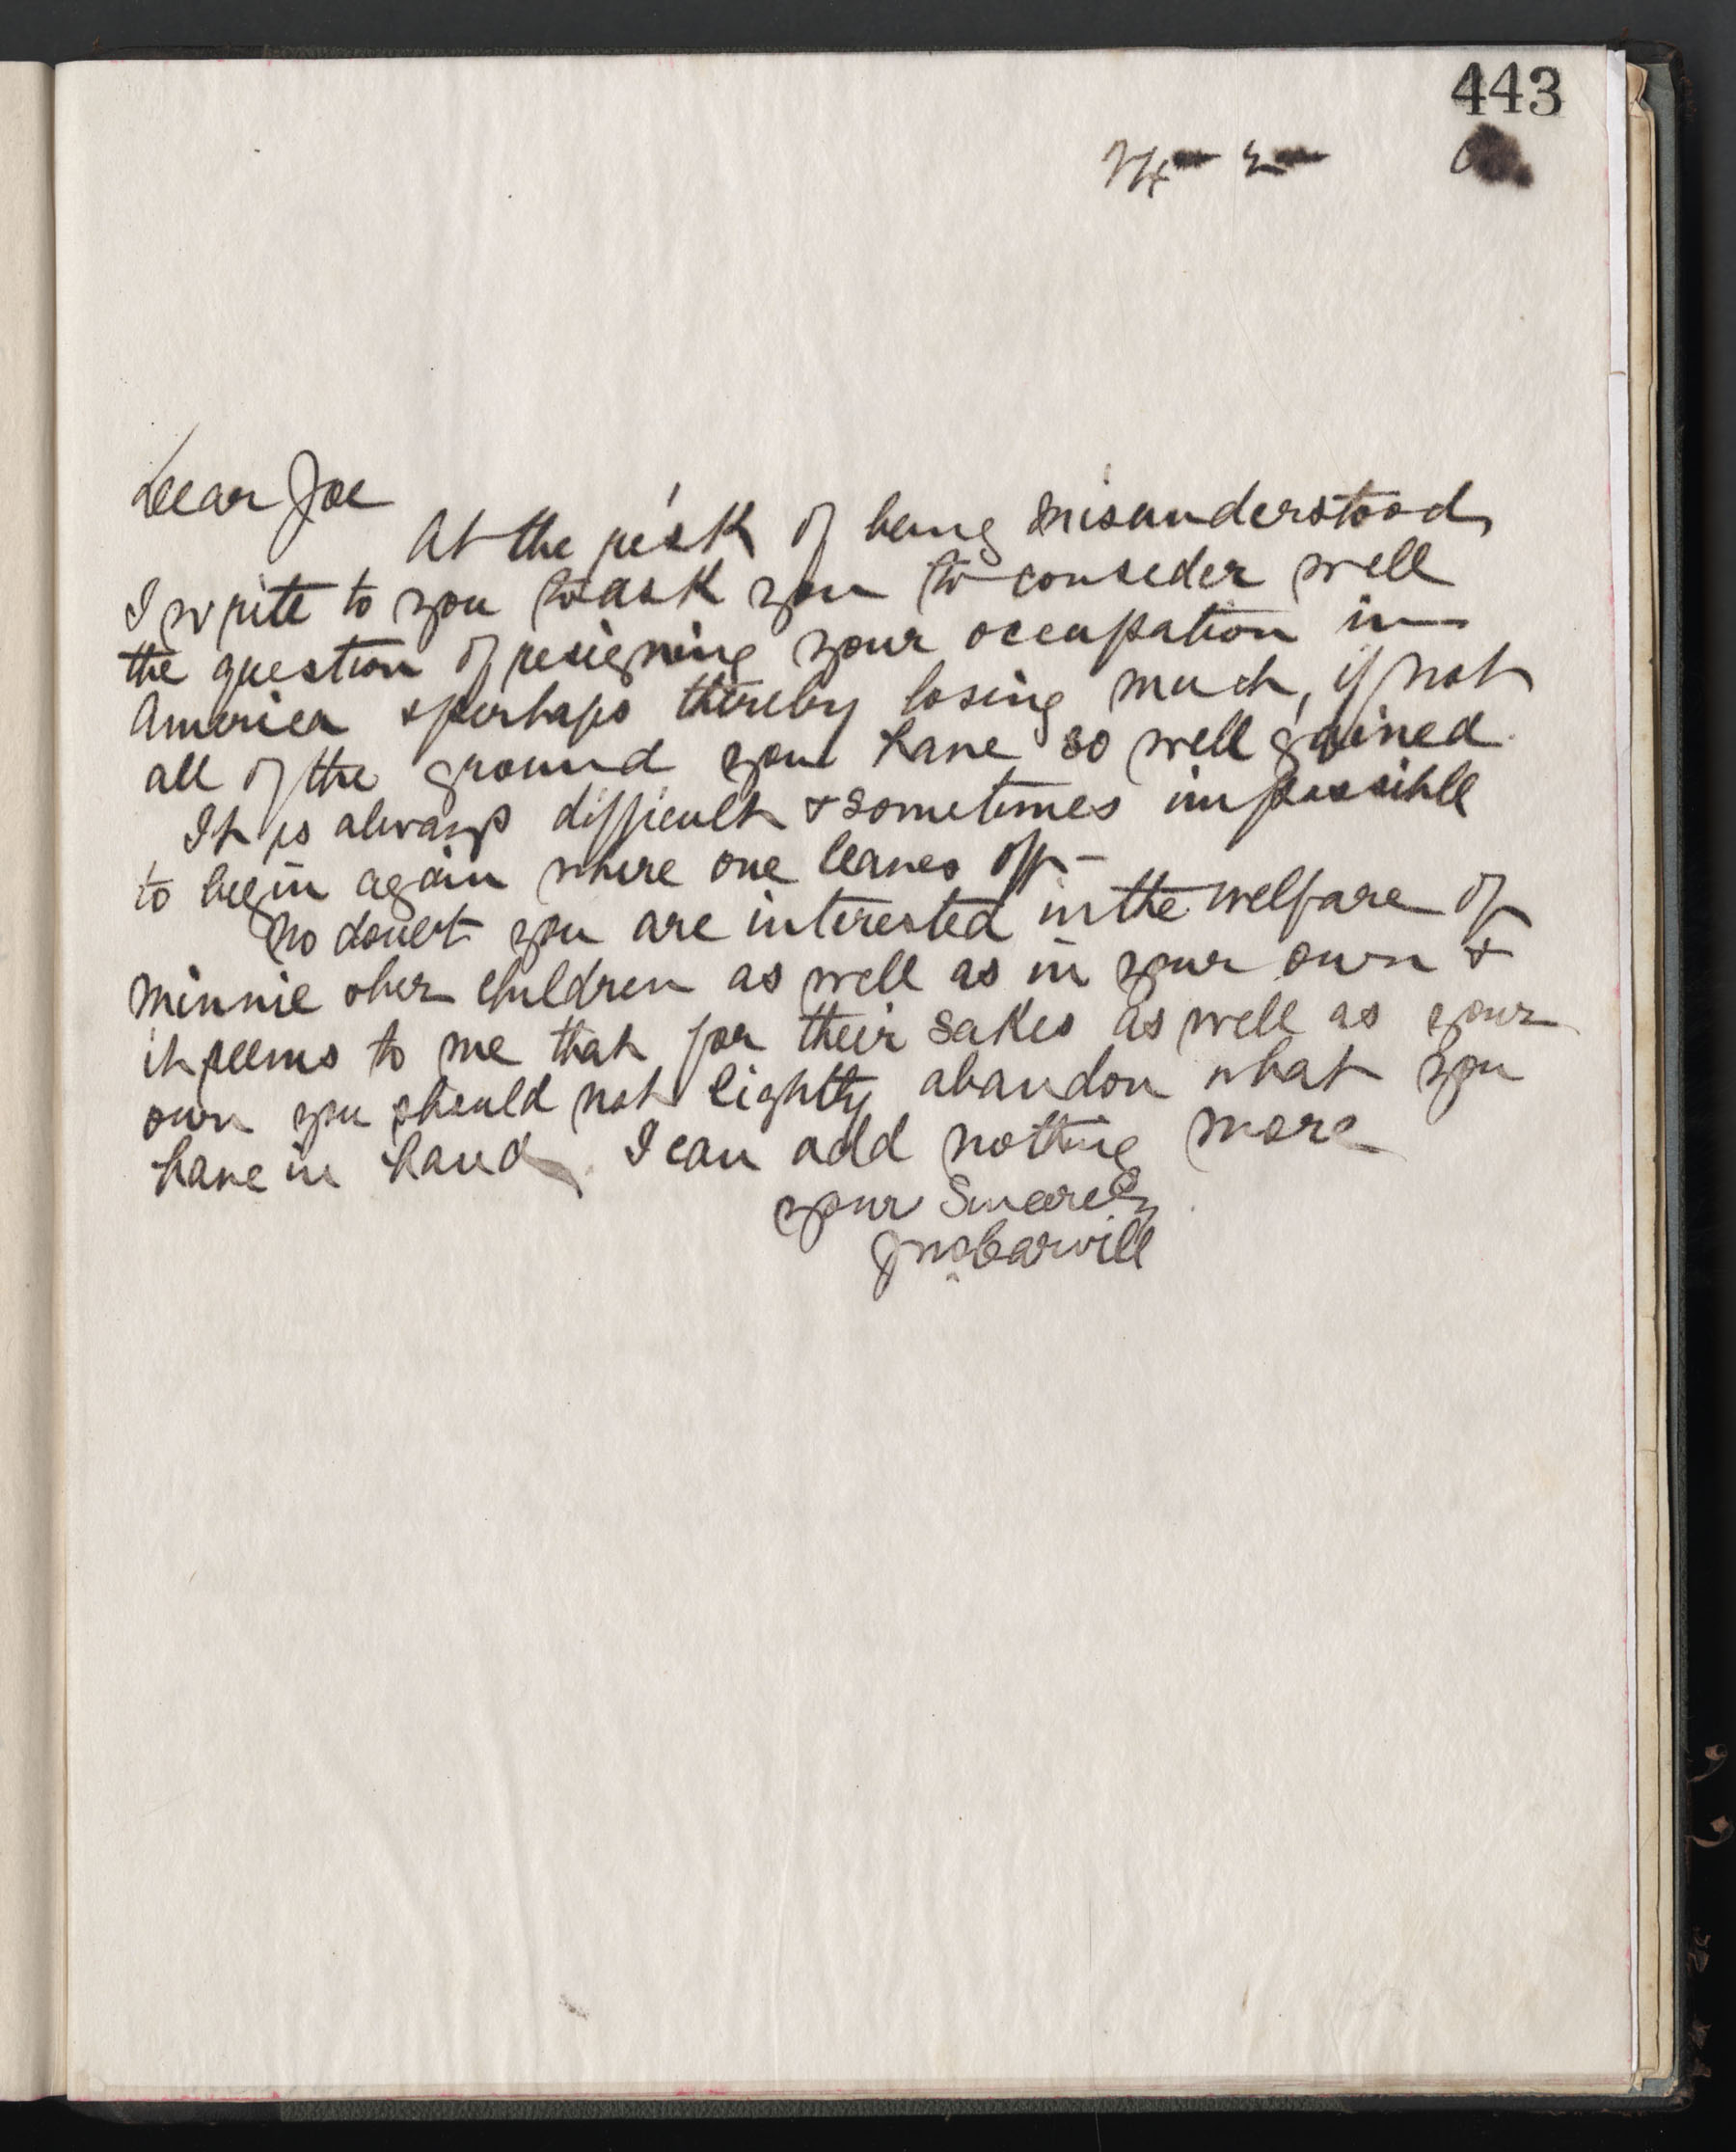 443
24 2
Dear Joe
At the risk of being misunderstood,
I write to you to ask you to consider well
the question of resigning your occupation in
America & perhaps thereby losing much, if not
all of the ground you have so well gained.
It is always difficult & sometimes impossible
to begin again where one leaves off -
No doubt you are interested in the welfare of
Minnie & her children as well as in your own &
it seems to me that for their sakes as well as your
own you should not lightly abandon what you
have in hand. I can add nothing more
your Sincerely
Jno Carvill